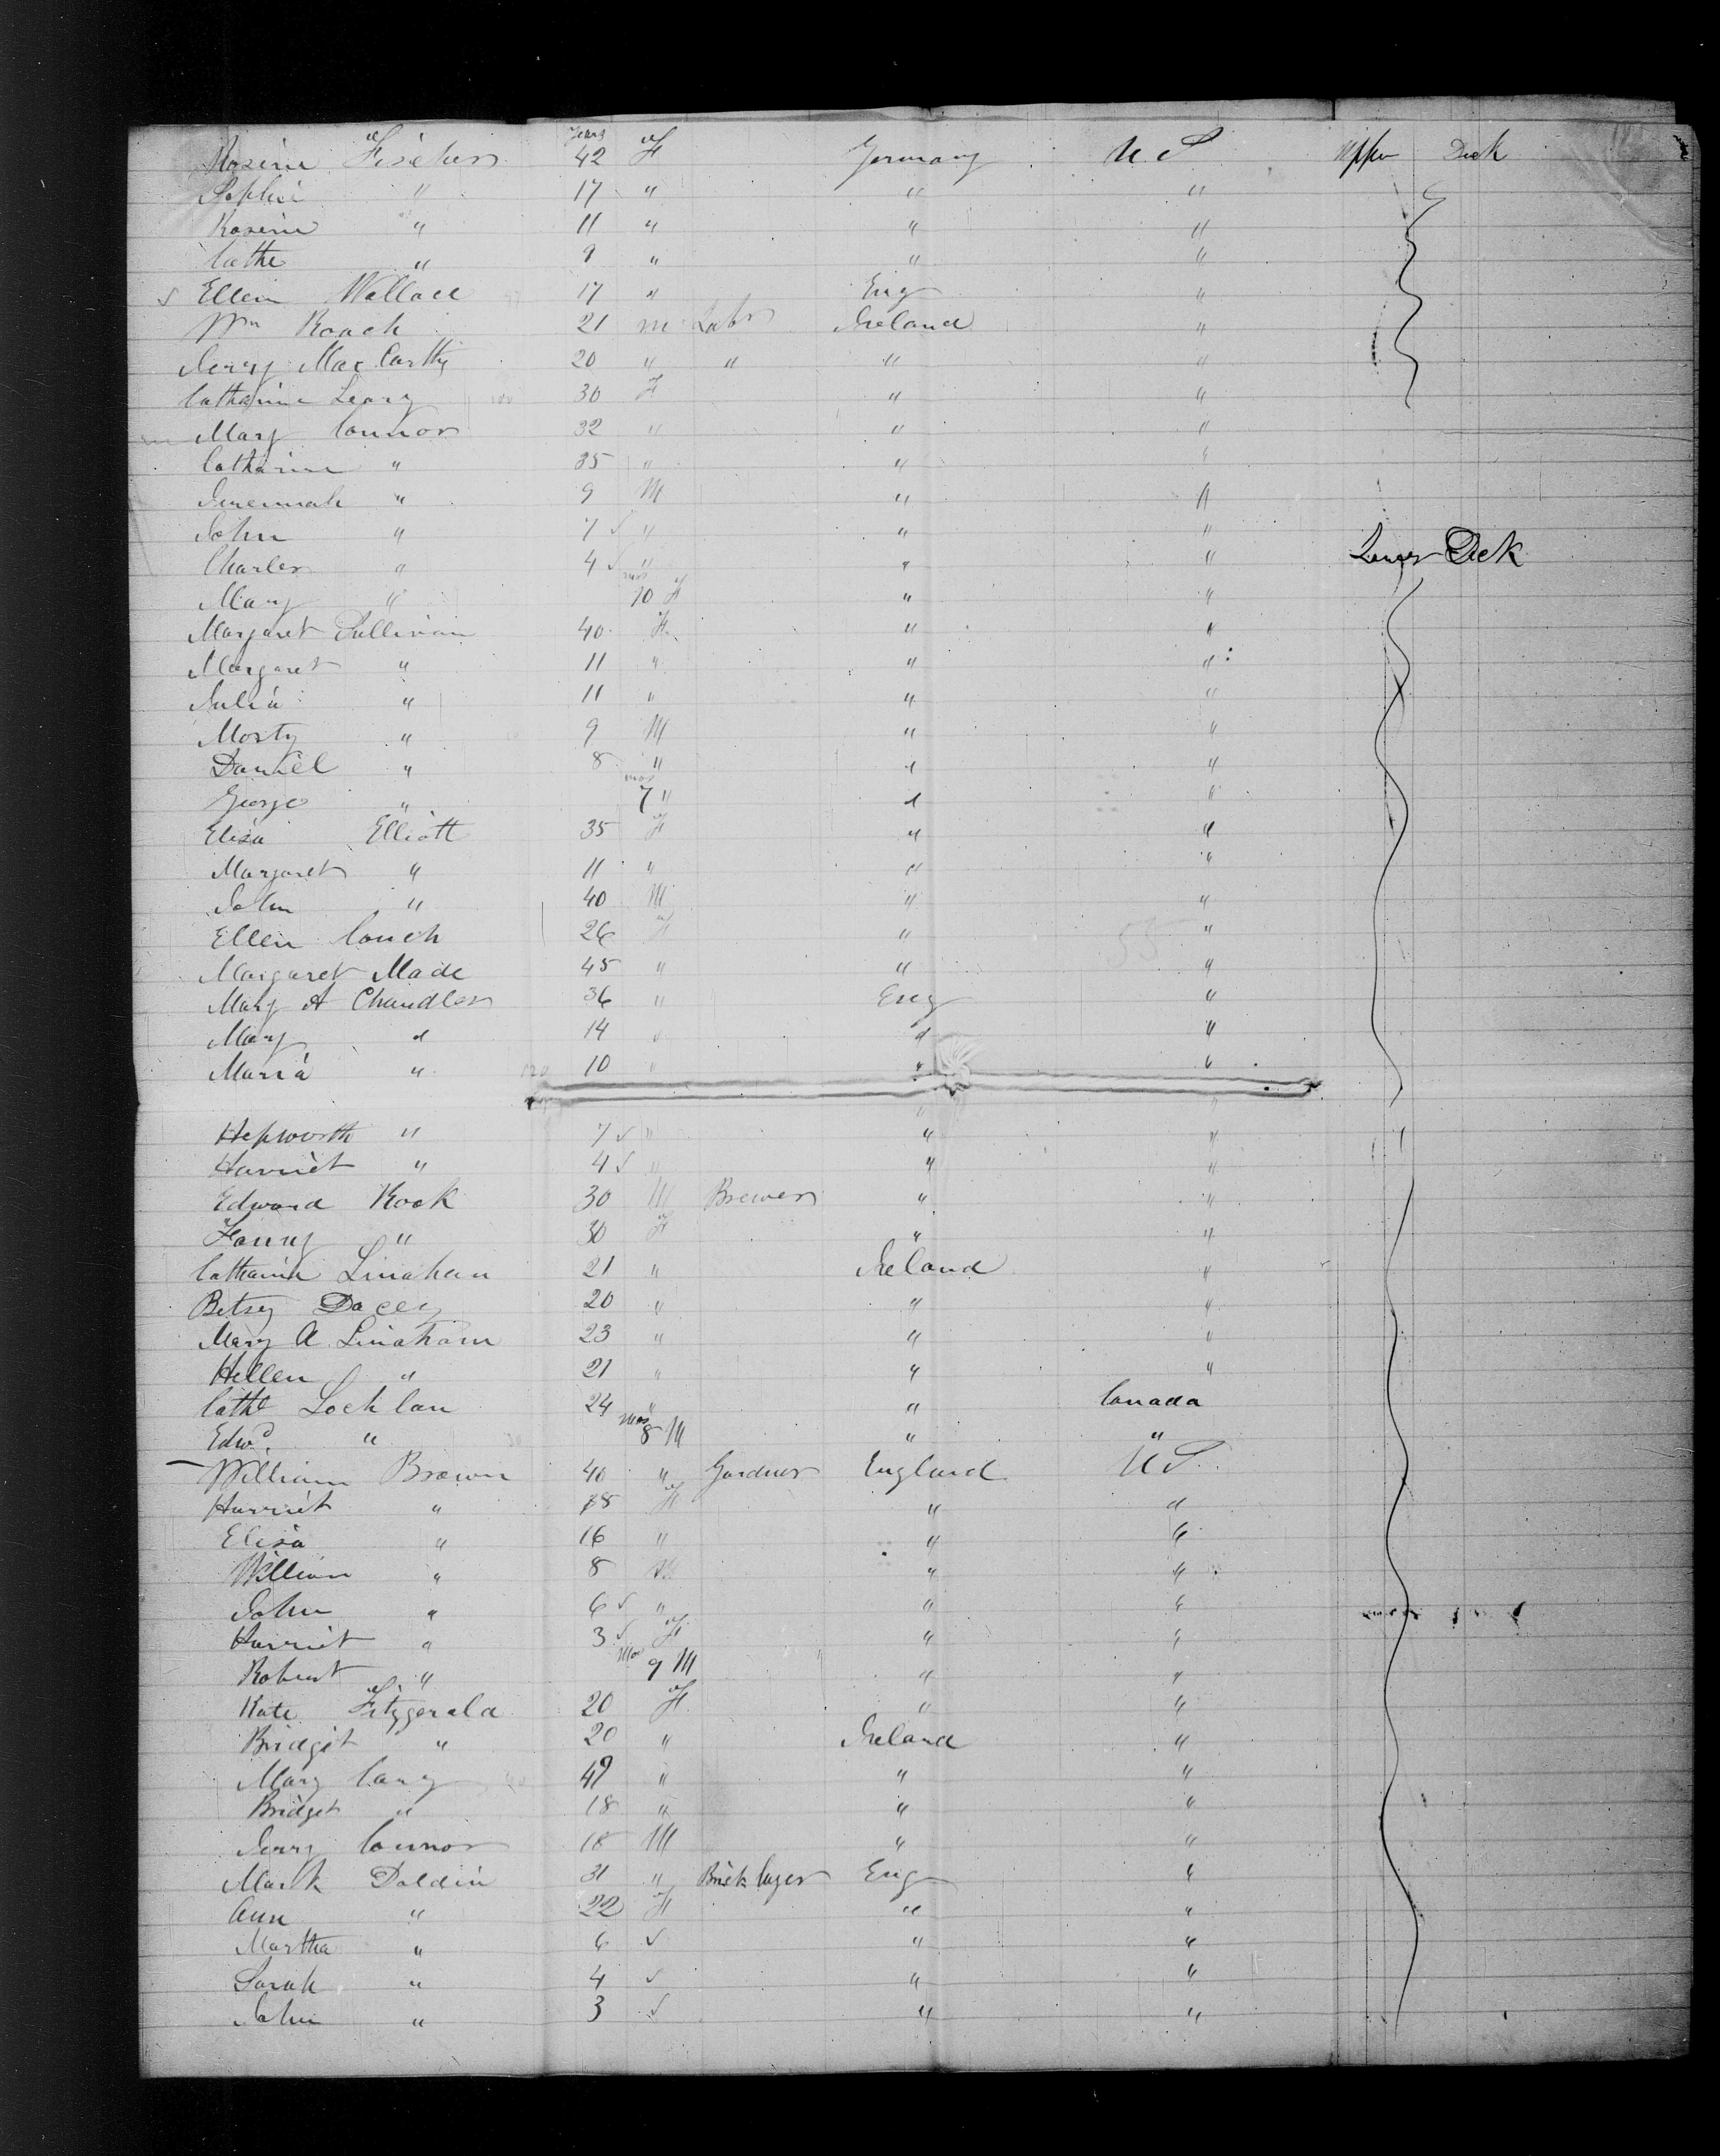 Years
Rosine Fischer 42 F Germany U.S. Upper Deck
Sophie " 17 " " "
Rosine " 11 " " "
Cathe " 9 " " "
Ellen Wallace 17 " Eng "
Wm Roach 21 M Labr Ireland "
Jerry MacCarthy 20 " " " "
Catharine Leary 30 F " "
Mary Connor 32 " " "
Catharine " 35 " " "
Jeremiah " 9 M " "
John " 7 " " "
Charles " 4 " " " Lower Deck
Mary " mos 10 F " "
Margaret Sullivan 40 F " "
Margaret " 11 " " "
Julia " 11 " " "
Morty " 9 M " "
Daniel " 8 " " "
George " mos 7 " " "
Elisa Elliott 35 F " "
Margaret " 11 " " "
John " 40 M " "
Ellen Couch 26 F " "
Margaret Made 45 " " "
Mary A Chandler 36 " Eng "
Mary " 14 " " "
Maria " 10 " " "
Hepworth " 7 " " "
Harriet " 4 " " "
Edward Rook 30 M Brewer " "
Fanny " 30 F " "
Catharine Linahan 21 " Ireland "
Betsy Dacey 20 " " "
Mary A Linaham 23 " " "
Hellen " 21 " " "
Cathe Lochlan 24 " " Canada
Edwd. " mos 8 M " "
William Brown 40 " Gardner England U.S.
Harriet " 38 F " "
Elisa " 16 " " "
William " 8 M " "
John " 6 " " "
Harriet " 3 F " "
Robert " mos 9 M " "
Kate Fitzgerald 20 F " "
Bridget " 20 " Ireland "
Mary Cany 49 " " "
Bridget " 18 " " "
Jerry Connor 18 M " "
Mark Doldin 31 " Bricklayer Eng "
Ann " 22 F " "
Martha " 6 ✓ " "
Sarah " 4 ✓ " "
John " 3 ✓ " "